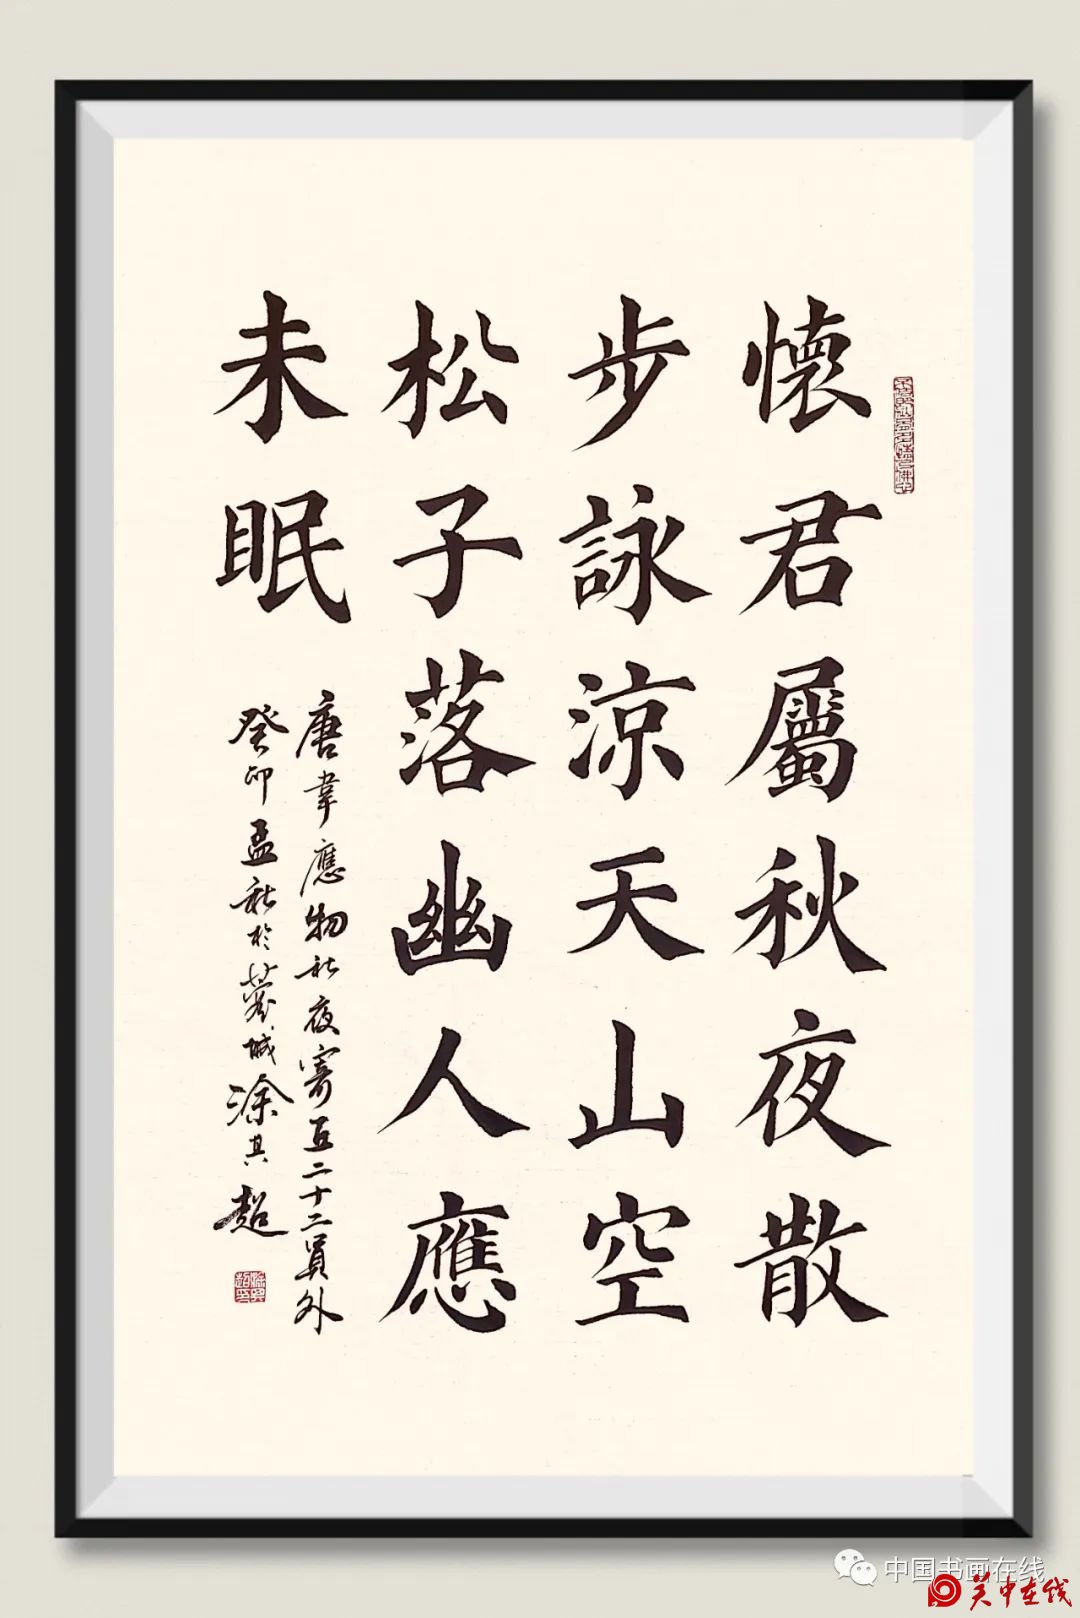 懷君屬秋夜散
步詠涼天山空
松子落幽人應
未眠
唐韋應物秋夜寄丘二十二員外
癸卯孟秋於蓉城涂其超
中国书画在线
关中在线